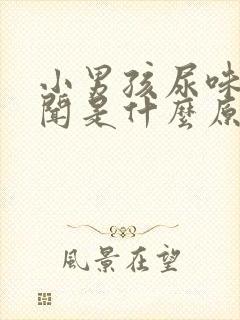 小男孩尿味
聞是什麼原
風景在望